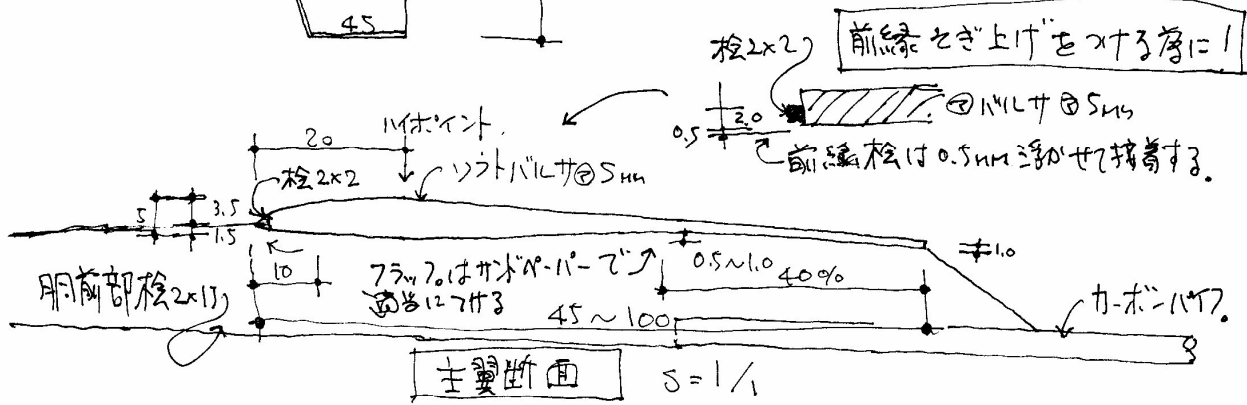 45
前縁そぎ上げをつける為に!
桧2×2
2.0
0.5
㋐バルサ㋐5mm
前縁桧は0.5mm浮かせて接着する。
20
ハイポイント
桧2×2
ソフトバルサ㋐5mm
5
3.5
1.5
10
フラップはサンドペーパーで
適当につける
0.5~1.0
40%
1.0
胴前部桧2×15
45~100
カーボンパイプ
主翼断面
S=1/1